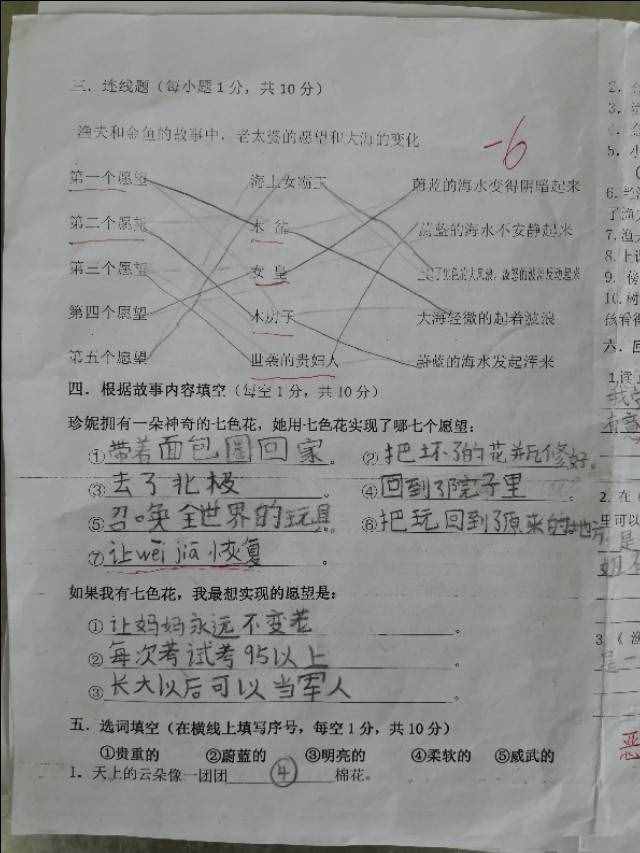 三．连线题（每小题1分，共10分）
渔夫和金鱼的故事中，老太婆的愿望和大海的变化
-6
第一个愿望 海上女霸王 蔚蓝的海水变得阴暗起来
第二个愿望 木盆 蔚蓝的海水不安静起来
第三个愿望 女皇
第四个愿望 木房子 大海轻微的起着波浪
第五个愿望 世袭的贵妇人 蔚蓝的海水发起浑来
四．根据故事内容填空（每空1分，共10分）
珍妮拥有一朵神奇的七色花，她用七色花实现了哪七个愿望：
①带着面包圈回家。 ②把坏了的花瓶修好。
③去了北极。 ④回到了院子里。
⑤召唤全世界的玩具。 ⑥把玩回到了原来的地方
⑦让wěi jiā恢复。
如果我有七色花，我最想实现的愿望是：
①让妈妈永远不变老。
②每次考试考95以上。
③长大以后可以当军人。
五．选词填空（在横线上填写序号，每空1分，共10分）
①贵重的 ②蔚蓝的 ③明亮的 ④柔软的 ⑤威武的
1．天上的云朵像一团团④棉花。